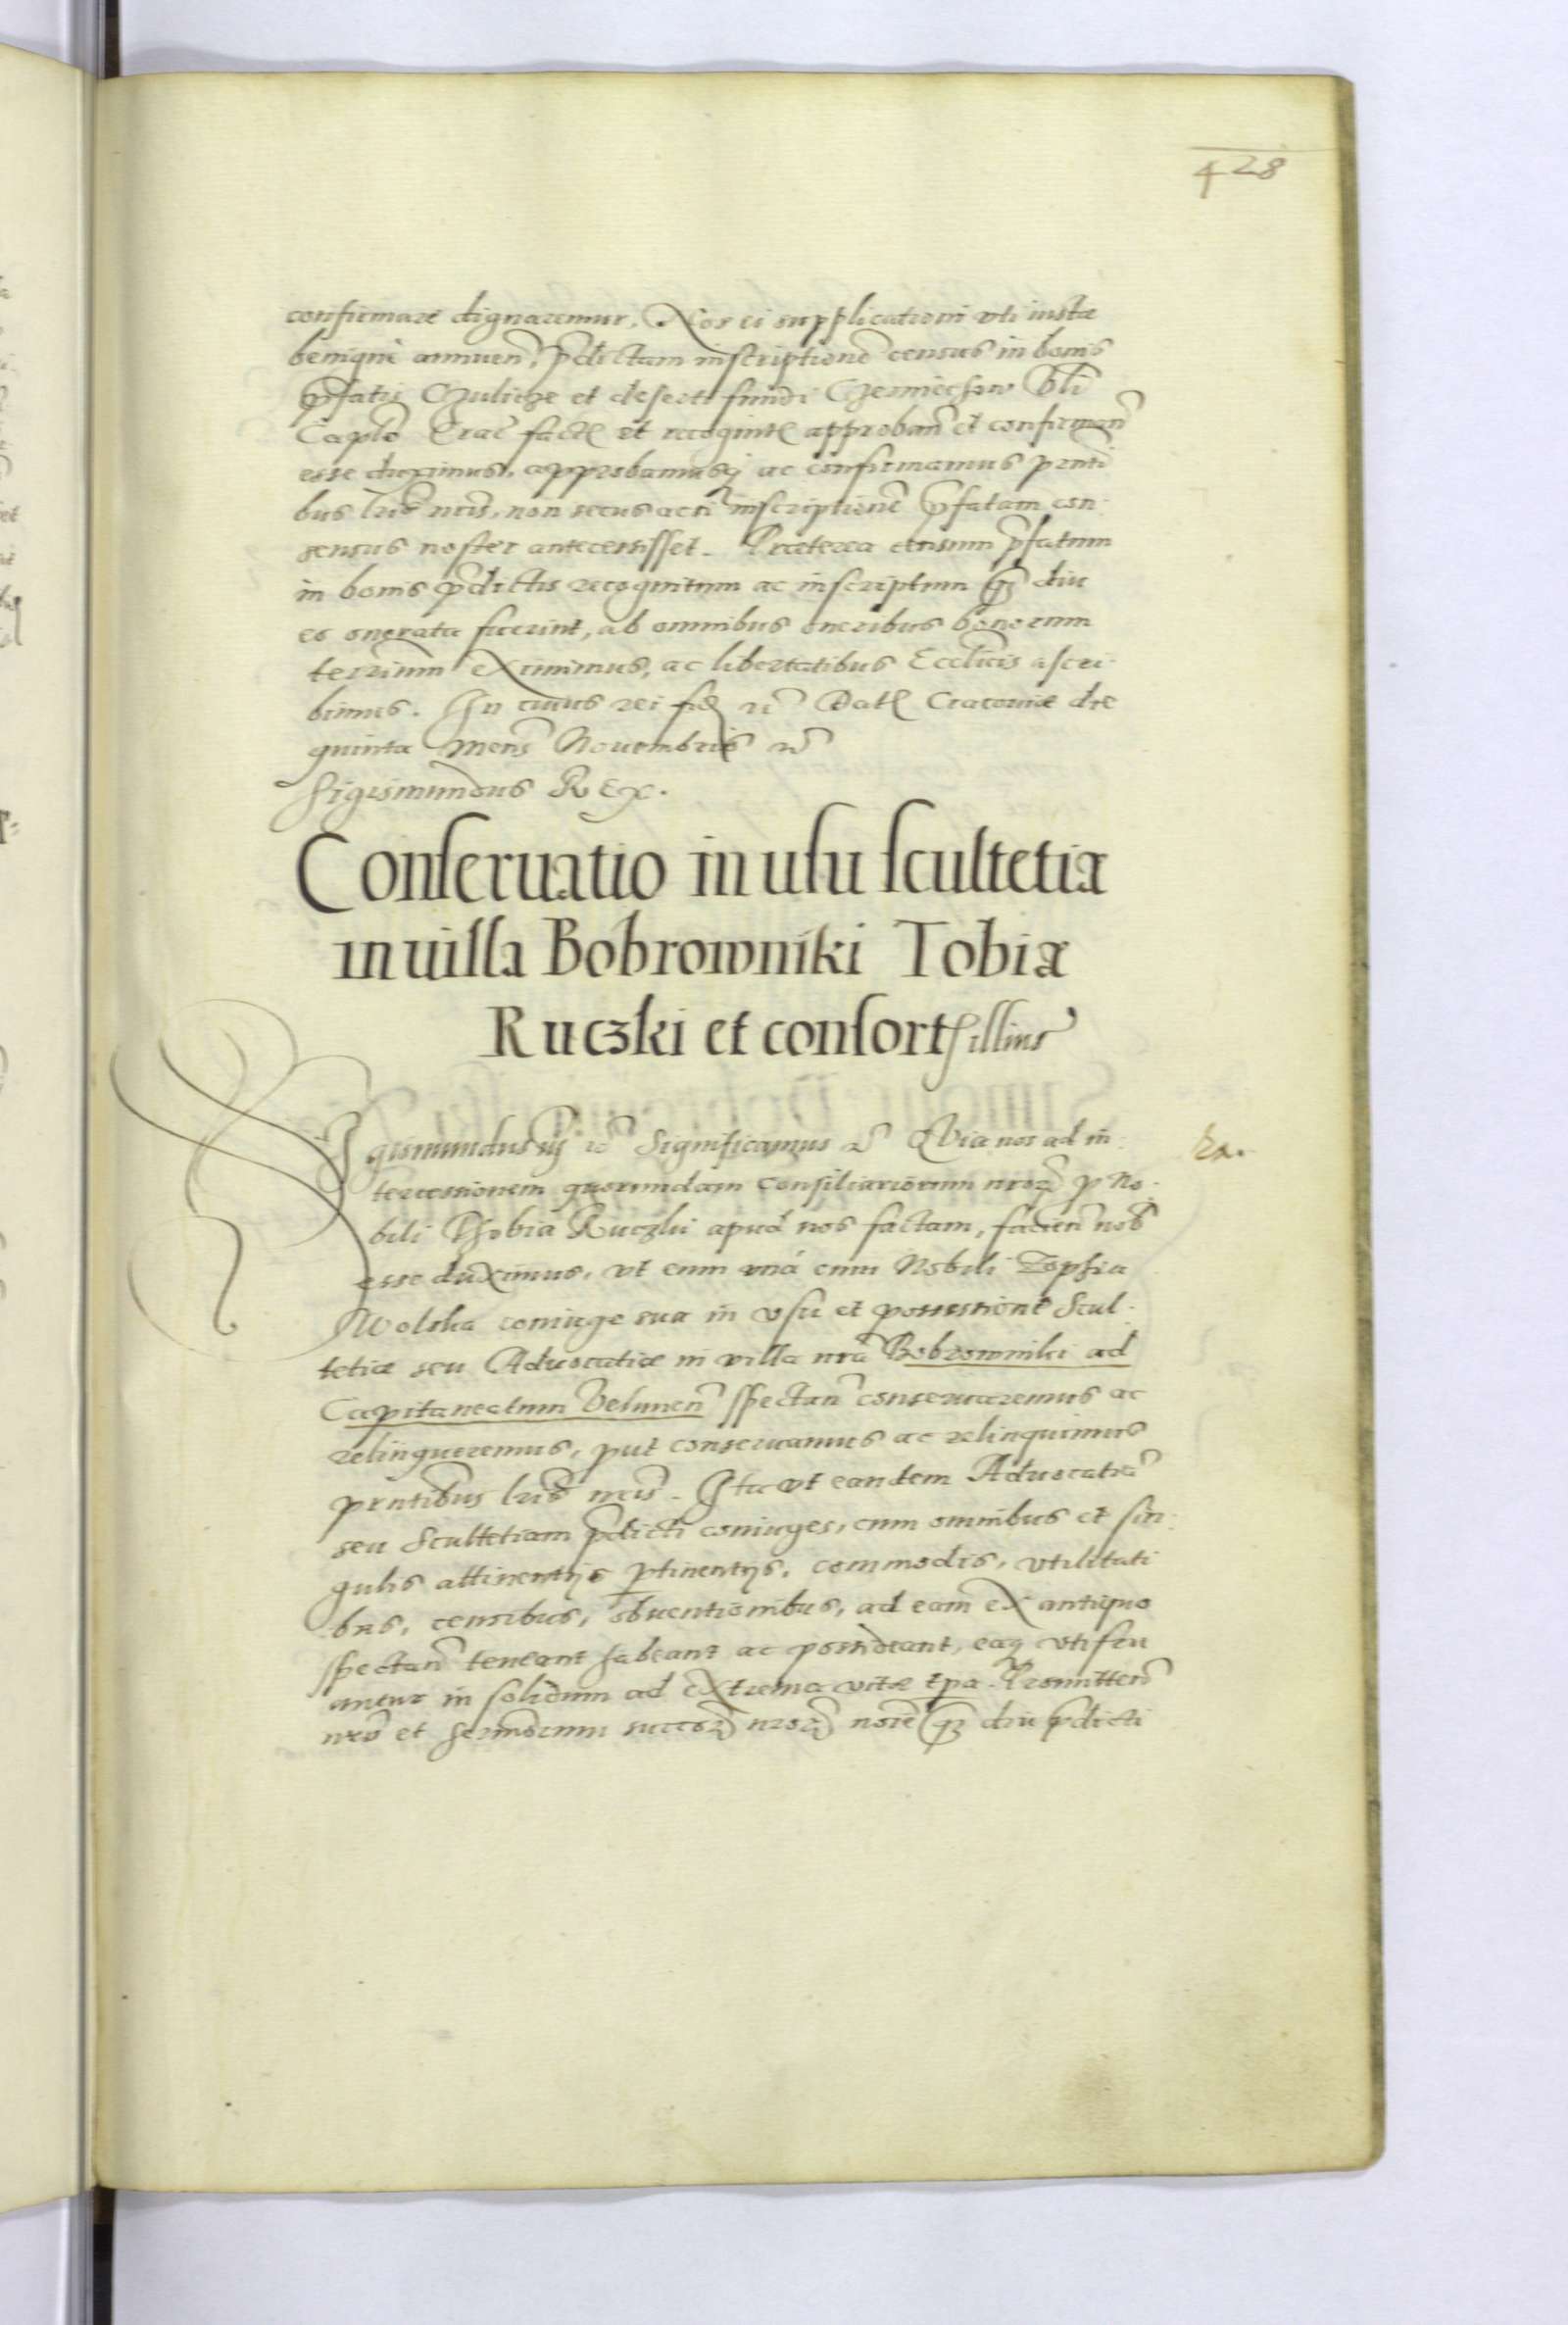 428
confirmare dignaremur, Nos ei supplicationi uti iustæ
benignè annuen̄, p̄dictam inscriptionē census in bonis
p̄fatis Czulicze et deserti fundi Czerniechow Vłi
Caplō Crac̄ factę et recognitę approban̄ et confirman̄
esse duximus, approbamusq ac confirmamus pn̄ti
bus lr̄is nr̄is, non secus ac si inscriptionē p̄fatam con-
sensus noster antecessisset. Præterea censum p̄fatum
in bonis p̄dictis recognitum ac inscriptum q̄ diu
eo onerata fuerint, ab omnibus oneribus bonorum
terrārum eximimus, ac libertatibus Eccl̄icis ascri-
bimus. In cuius rei fid̄ rc̄ Datę Cracoviæ die
quinta Mens̄ Novembris rc̄
Sigismundus Rex.
Conservatio in usu scultetiæ
in villa Bobrowniki Tobiæ
Ruczki et consort illius
Sigismundus iij rc̄ Significamus rc̄ Quia nos ad in-
tercessionem quorundam consiliariorum nr̄oꝝ p No-
bili Thobia Ruczki apud nos factam, facien̄ nob̄
esse duximus, ut eum unà cum Nobili Zophia
Wolska coniuge sua in usu et possessione Scul-
tetiæ seu Advocatiæ in villa nr̄a Bobrowniki ad
Capitaneatum Velunen̄ spectan̄ conservaremus ac
relinqueremus, put conservamus ac relinquimus
pn̄tibus lr̄is nr̄is. Ita ut eandem Advocatiā
seu Scultetiam p̄dicti coniuges, cum omnibus et sin-
gulis attinentijs ptinentijs, commodis, utilitati
bus, censibus, obventionibus, ad eam ex antiquo
spectan̄ teneant habeant ac possideant, eaq utifru
antur in solidum ad extrema vitæ tpa. Promitten̄
nr̄o et Sermōrum succoꝝ nr̄oꝝ noīe q̄ diu p̄dicti